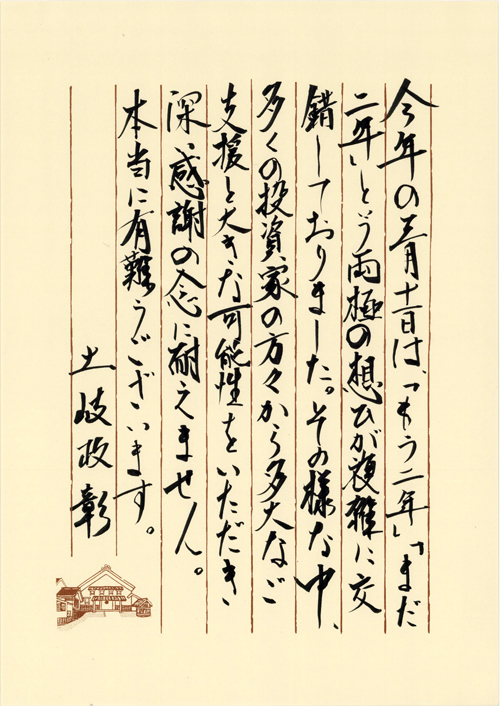 今年の三月十一日は、「もう二年」「まだ
二年」とう両極の想ひが複雑に交
錯しておりました。その様な中、
多くの投資家の方々から多大なご
支援と大きな可能性をいただき
深い感謝の念に耐えません。
本当に有難うございます。
土岐政彰